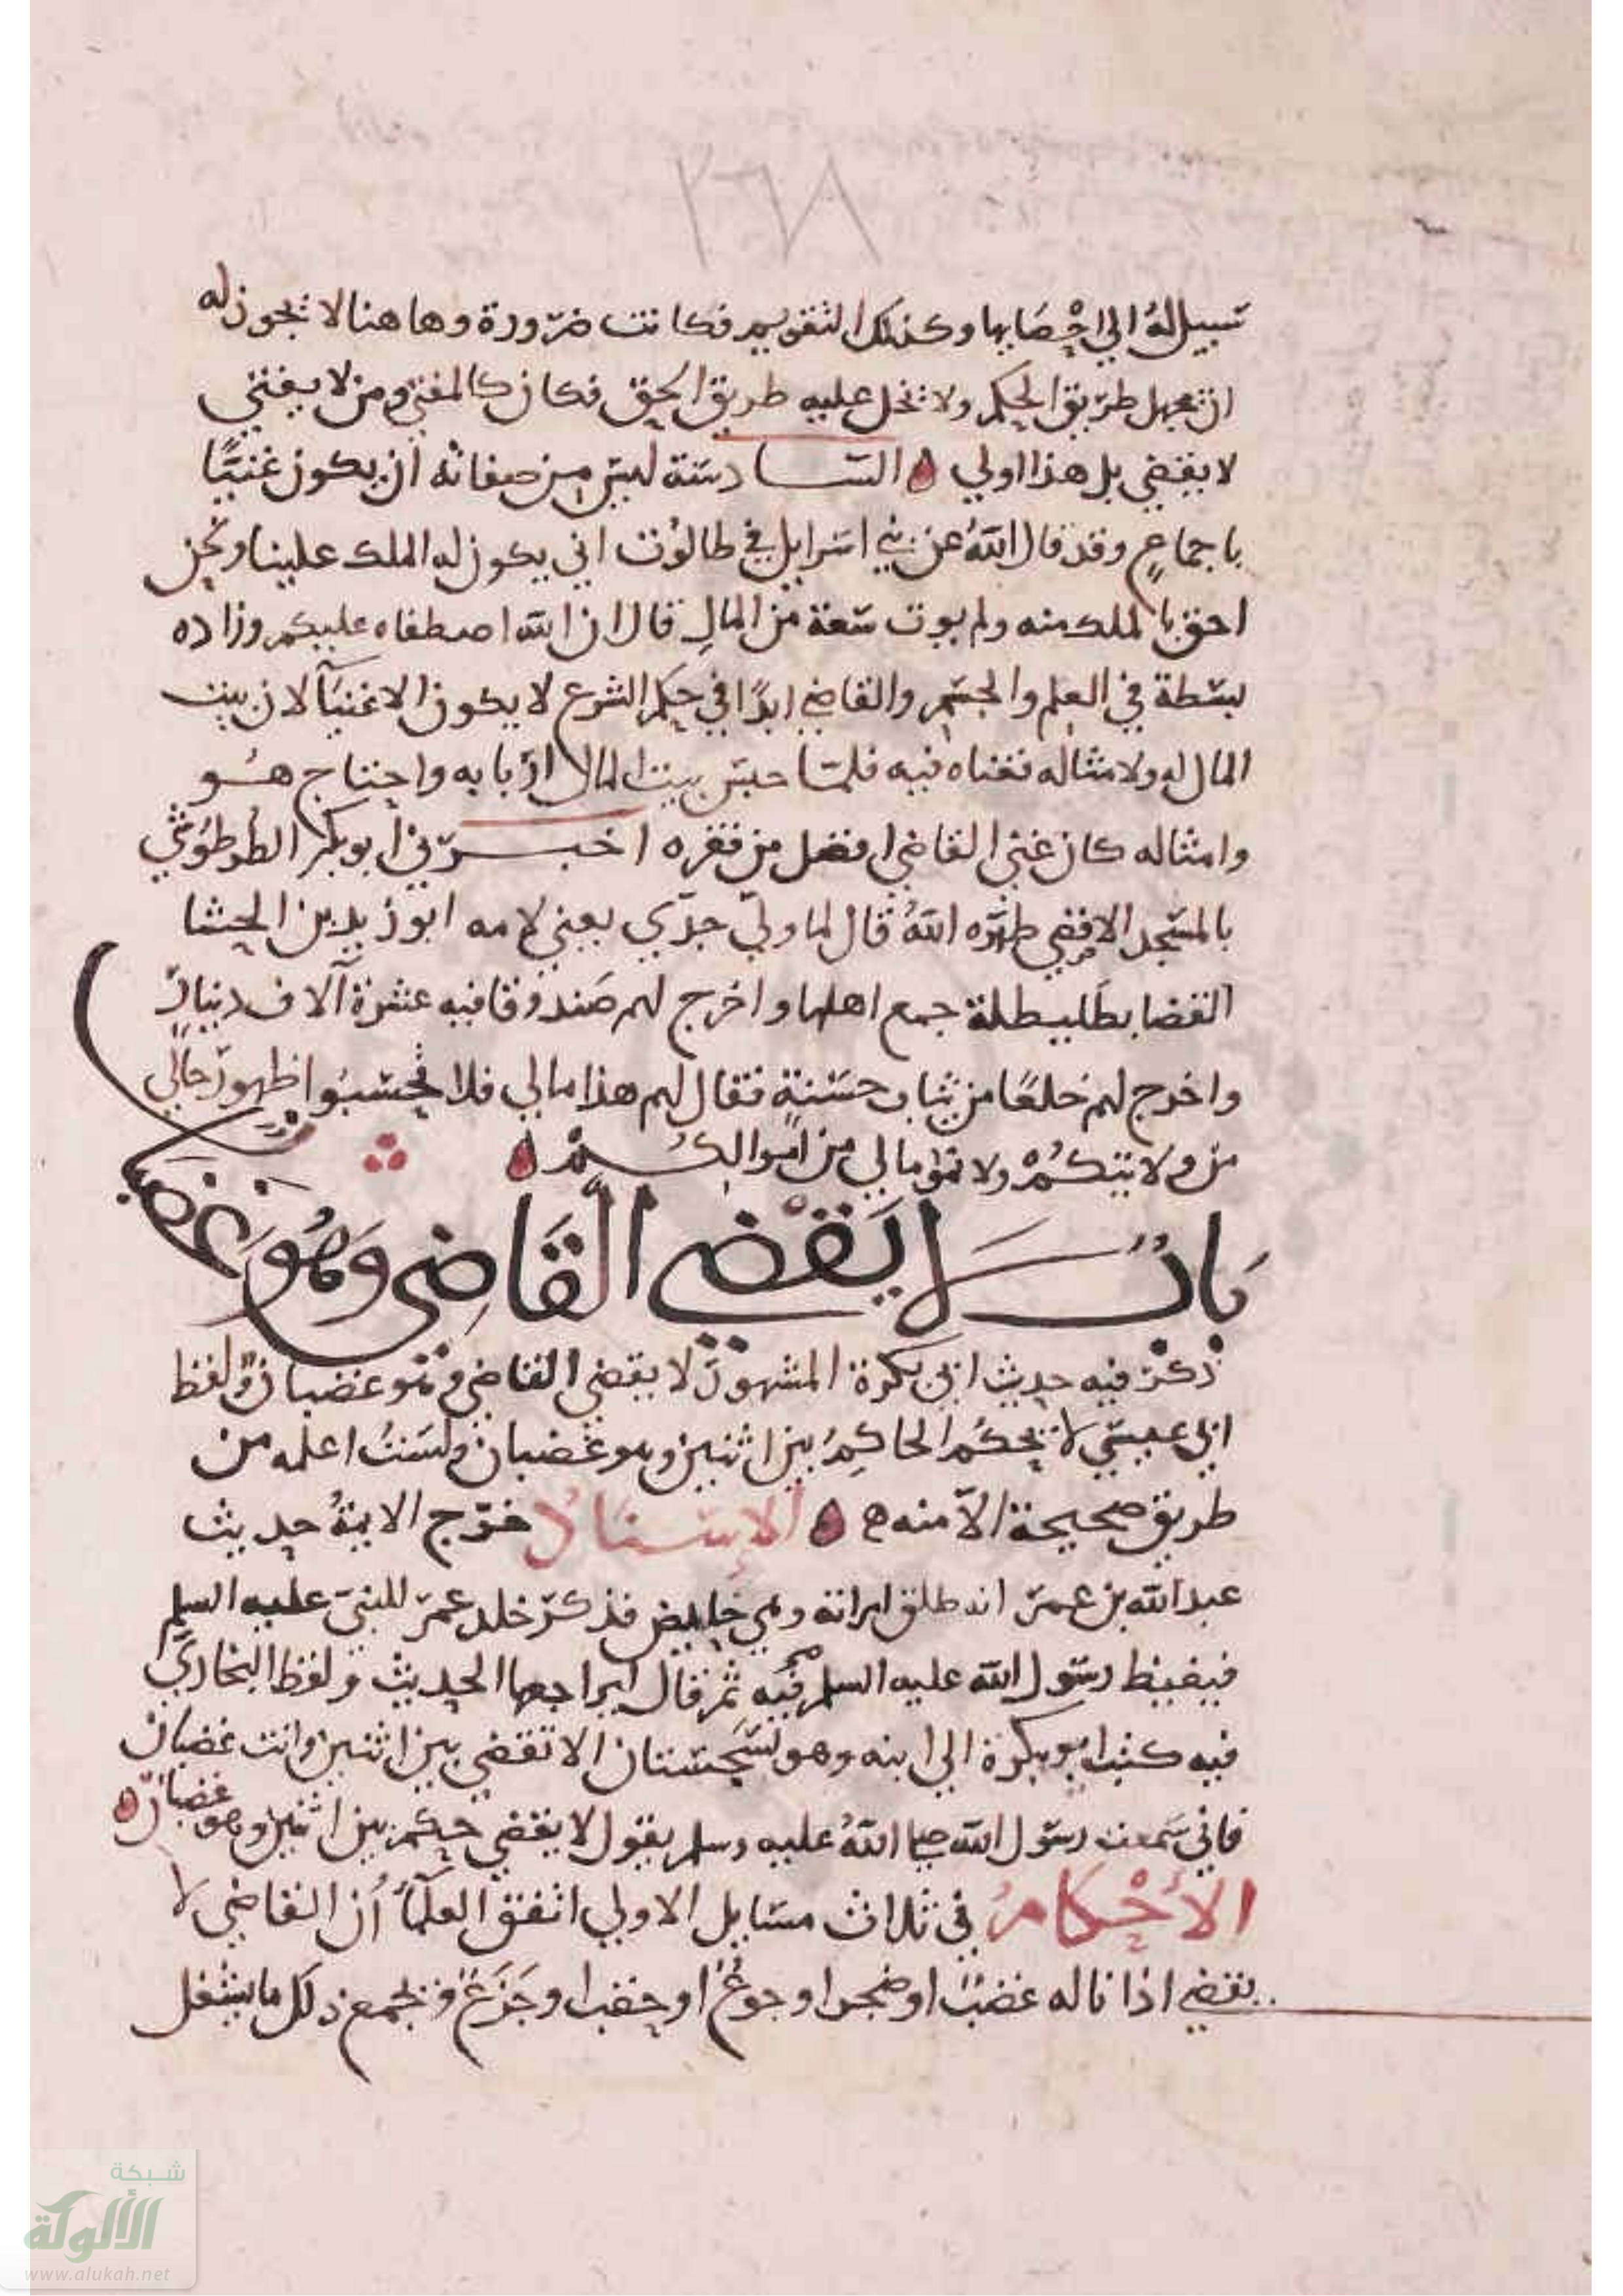 ٢٦٨
سبيل له الي احصايها وكذلك التقويم فكانت ضرورة وها هنا لا يجوز له
ان يجهل طريق الحكم ولا تخل عليه طريق الحق فكان كالمفتي ومن لا يفتي
لا يقضي بل هذا اولي ه السادسة ليس من صفاته أن يكون غنيًّا
باجماعٍ وقد قال اللهُ عن بني اسرايل في طالوُت اني يكون له الملك علينا ونحن
احق بالملك منه ولم يوت سَعة من المالِ قال ان الله اصطفاه عليكم وزاده
بسطة في العلم والجسم والقاضي ابدًا في حكم الشرع لا يكون الا غنيًا لان بيت
المال له ولامثاله فغناه فيه فلما حبس بيت المال اربابه واحتاج هُو
وامثاله كان غني القاضي افضل من فقره اخبرني أبو بكر الطرطوشي
بالمسجد الاقصي طهّره اللهُ قال لما ولي جدّي يعني لامه ابو زيد بن الحشا
القضا بطليطلة جمع اهلها واخرج لهم صندوقا فيه عشرة آلاف دينار
واخرج لهم خلعًا من ثياب حسَنةٍ فقال لهم هذا مالي فلا تحسبُوا ظهور حالي
من ولايتكُمْ ولا نموّ مالي من أموالكُمْ ه
بَابُ لا يَقْضي القَاضِي وَهُوَ غضبان
ذكر فيه حديث ابي بكرة المشهور لا يقضي القاضي وهو غضبان ولفظ
ابي عيسي لا يحكُم الحاكِمُ بين اثنين وهو غضبان ولسْتُ اعلمه من
طريق صحيحة الاّ منه ه الإسنادُ خرّج الايمةُ حديث
عبد الله بن عمر انه طلق امراته وهي حايض فذكر ذلك عمر للنبي عليه السلم
فيغيظ رسول الله عليه السلم فيه ثم قال ليراجعها الحديث ولفظ البخاري
فيه كتب ابو بكرة الي ابنه وهو بسَجستان الا تقضي بين اثنين وانت غضبان
فاني سَمعت رسول الله صلى اللهُ عليه وسلم يقول لا يقضي حكم بين اثنين وهو غضبان ه
الأحْكامُ في ثلاث مسايل الاولي اتفق العلمآُ أن القاضي لا
يقضي اذا ناله غضبٌ او ضجر او جوعٌ او حقب او جَزَعٌ ويجمع ذلك ما يشغل
شبكة
الألوكة
www.alukah.net